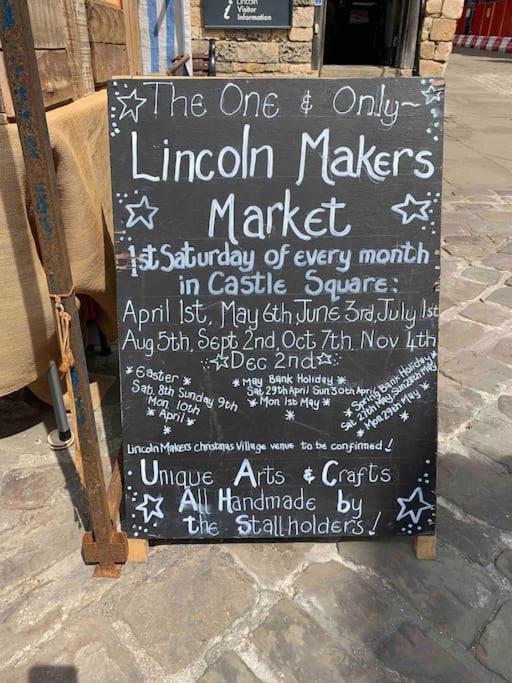 Lincoln
Visitor
Information
The One & Only~
Lincoln Makers
Market
1st Saturday of every month
in Castle Square:
April 1st, May 6th, June 3rd, July 1st
Aug 5th, Sept 2nd, Oct 7th, Nov 4th
Dec 2nd
Easter
Sat. 8th Sunday 9th
Mon 10th
April
May Bank Holiday
Sat 29th April Sun 30th April
Mon 1st May
Spring Bank Holiday
Sat 27th May Sun 28th May
Mon 29th May
Lincoln Makers christmas Village venue to be confirmed!
Unique Arts & Crafts
All Handmade by
the Stallholders!